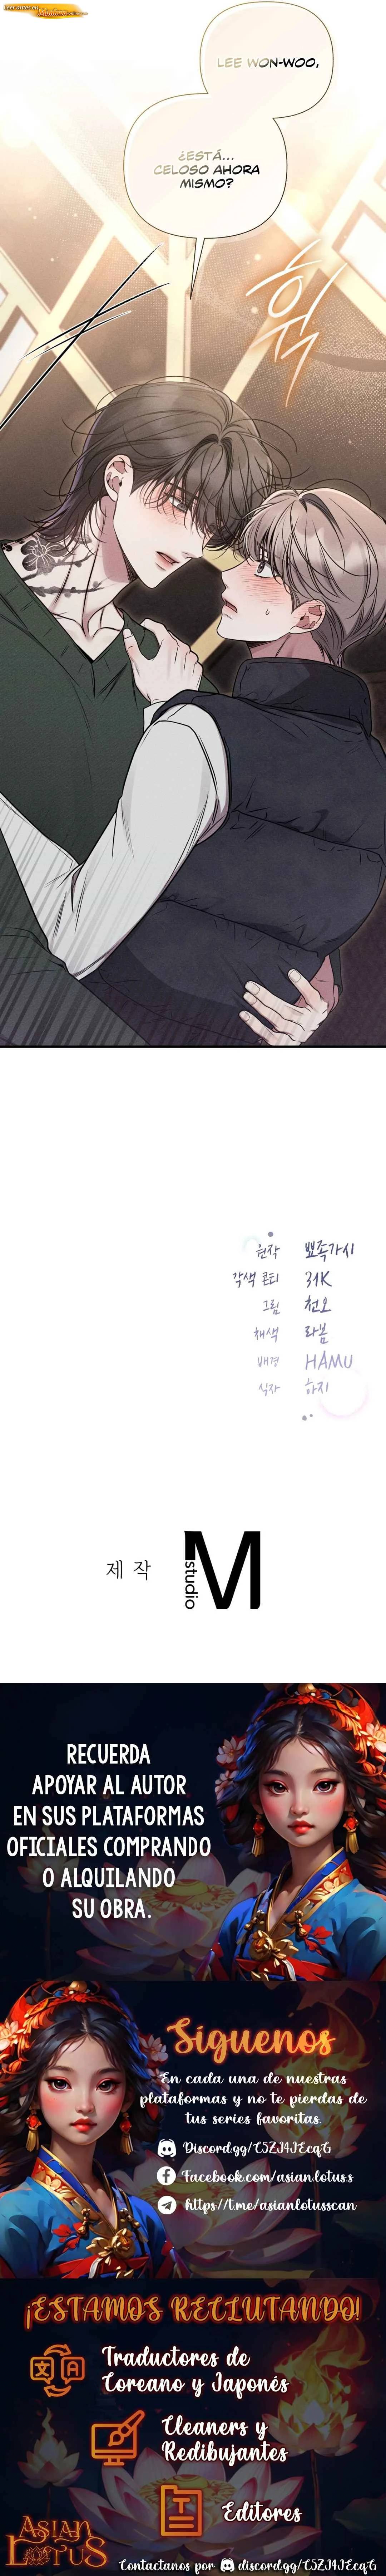 LEE WON-WOO,
¿ESTÁ...
CELOSO AHORA
MISMO?
휙
원작 뾰족가시
각색 콘티 31K
그림 천오
채색 라봄
배경 HAMU
식자 하지
제작
M
studio
RECUERDA
APOYAR AL AUTOR
EN SUS PLATAFORMAS
OFICIALES COMPRANDO
O ALQUILANDO
SU OBRA.
Síguenos
En cada una de nuestras
plataformas y no te pierdas de
tus series favoritas.
Discord.gg/C5ZJ4JEcqG
Facebook.com/asian.lotus.s
https://t.me/asianlotusscan
¡ESTAMOS RECLUTANDO!
Traductores de
Coreano y Japonés
Cleaners y
Redibujantes
Editores
ASIAN
LOTUS
Contactanos por discord.gg/C5ZJ4JEcqG